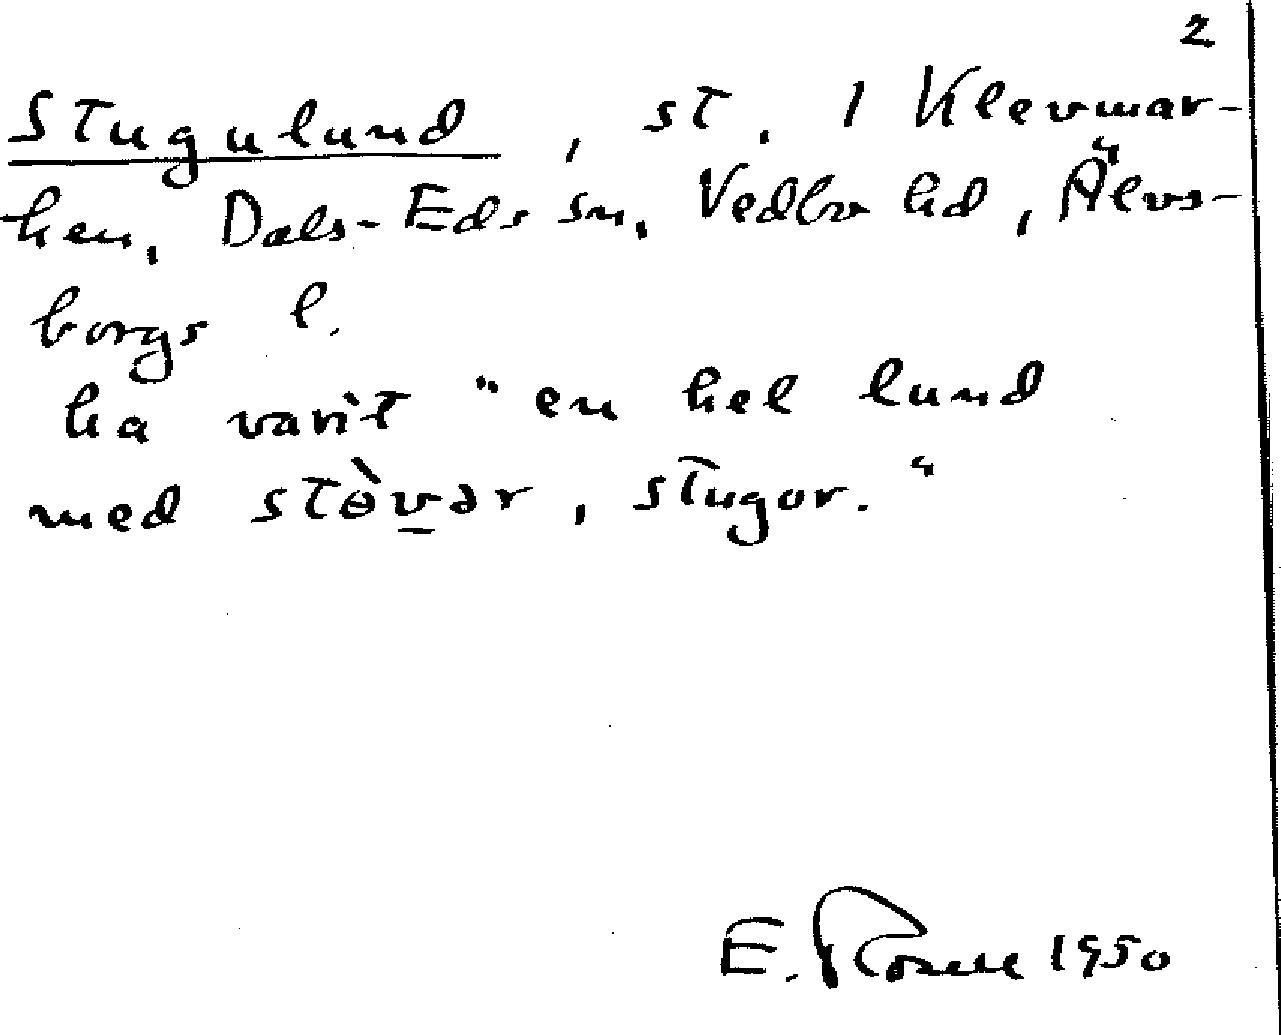 2
Stugulund, st. i Klevmar-
ken, Dals-Eds sn, Vedbo hd, Älvs-
borgs l.
ha varit "en hel lund
med stòv̲ər, stugor."
E. Rosell 1950